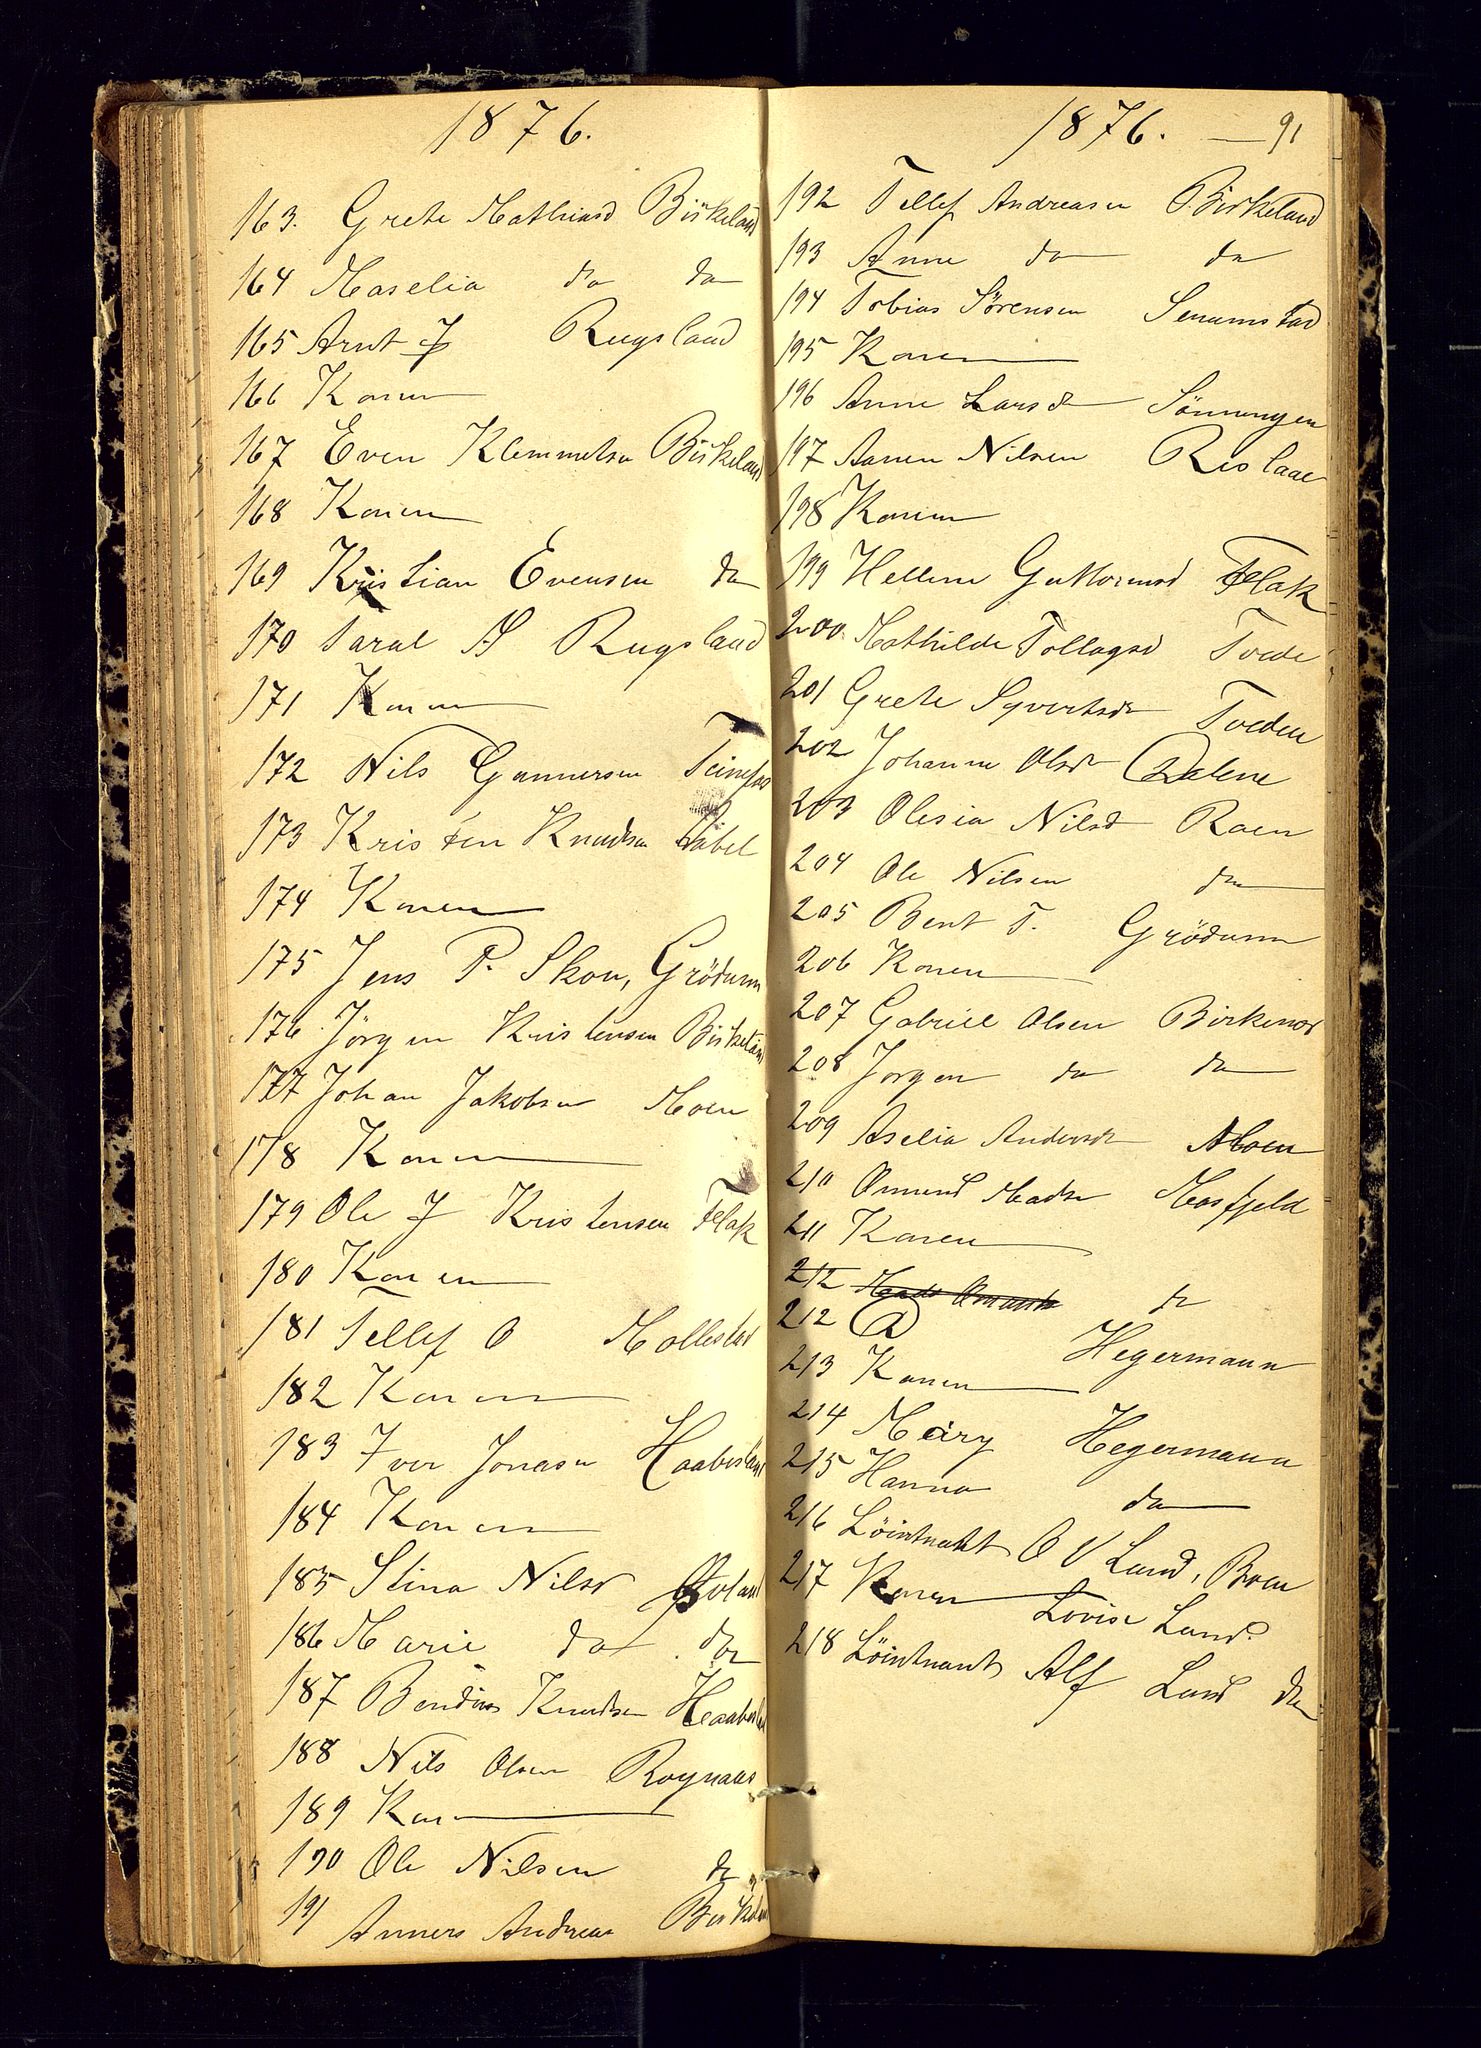 1876.
163. Grete Mathiasd Birkeland
164 Maselia do do
165 Arnt J Rugsland
166 Konen
167 Even Klemmetsn Birkeland
168 Konen
169 Kristian Evensen do
170 Taral A Rugsland
171 Konen
172 Nils Gunnersen
173 Kristen Knudsen Væbel
174 Konen
175 Jens P. Skou, Grödum
176. Jörgen Kristensen Birkeland
177 Johan Jakobsen Moen
178 Konen
179 Ole J Kristensen Flak
180 Konen
181 Tellef O Mollestad
182 Konen
183 Iver Jonasn Haabesland
184 Konen
185 Stina Nilsd
186 Marie do do
187 Bendix Knudsen Haabesland
188 Nils Olsen Roynaas
189 Kon
190 Ole Nilsen do
191 Anners Andreas Birkeland
1876. — 91
192 Tellef Andreasen Birkeland
193 Anne do do
194 Tobias Sörensen Senumstad
195 Konen
196 Anne Larsd Sönningen
197 Aanen Nilsen Rislaae
198 Konen
199 Hellene Guttormsd Flak
200. Mathilde Tollagsd Tvede
201 Grete Syvertsd Tveden
202 Johanne Olsd Dalene
203 Olesia Nilsd Roen
204 Ole Nilsen do
205 Bent T. Grödum
206 Konen
207 Gabriel Olsen Birkenes
208 Jorgen do do
209 Aselia Andersd Moen
210 Omund Madsn Mosfjeld
211 Konen
212 Mads Omunds do
212 A Hegermann
213 Konen
214 Mary Hegermann
215 Hanna do
216 Löintnant O V Lund, Boen
217 Konen Lovise Lund.
218 Löintnant Alf Lund do